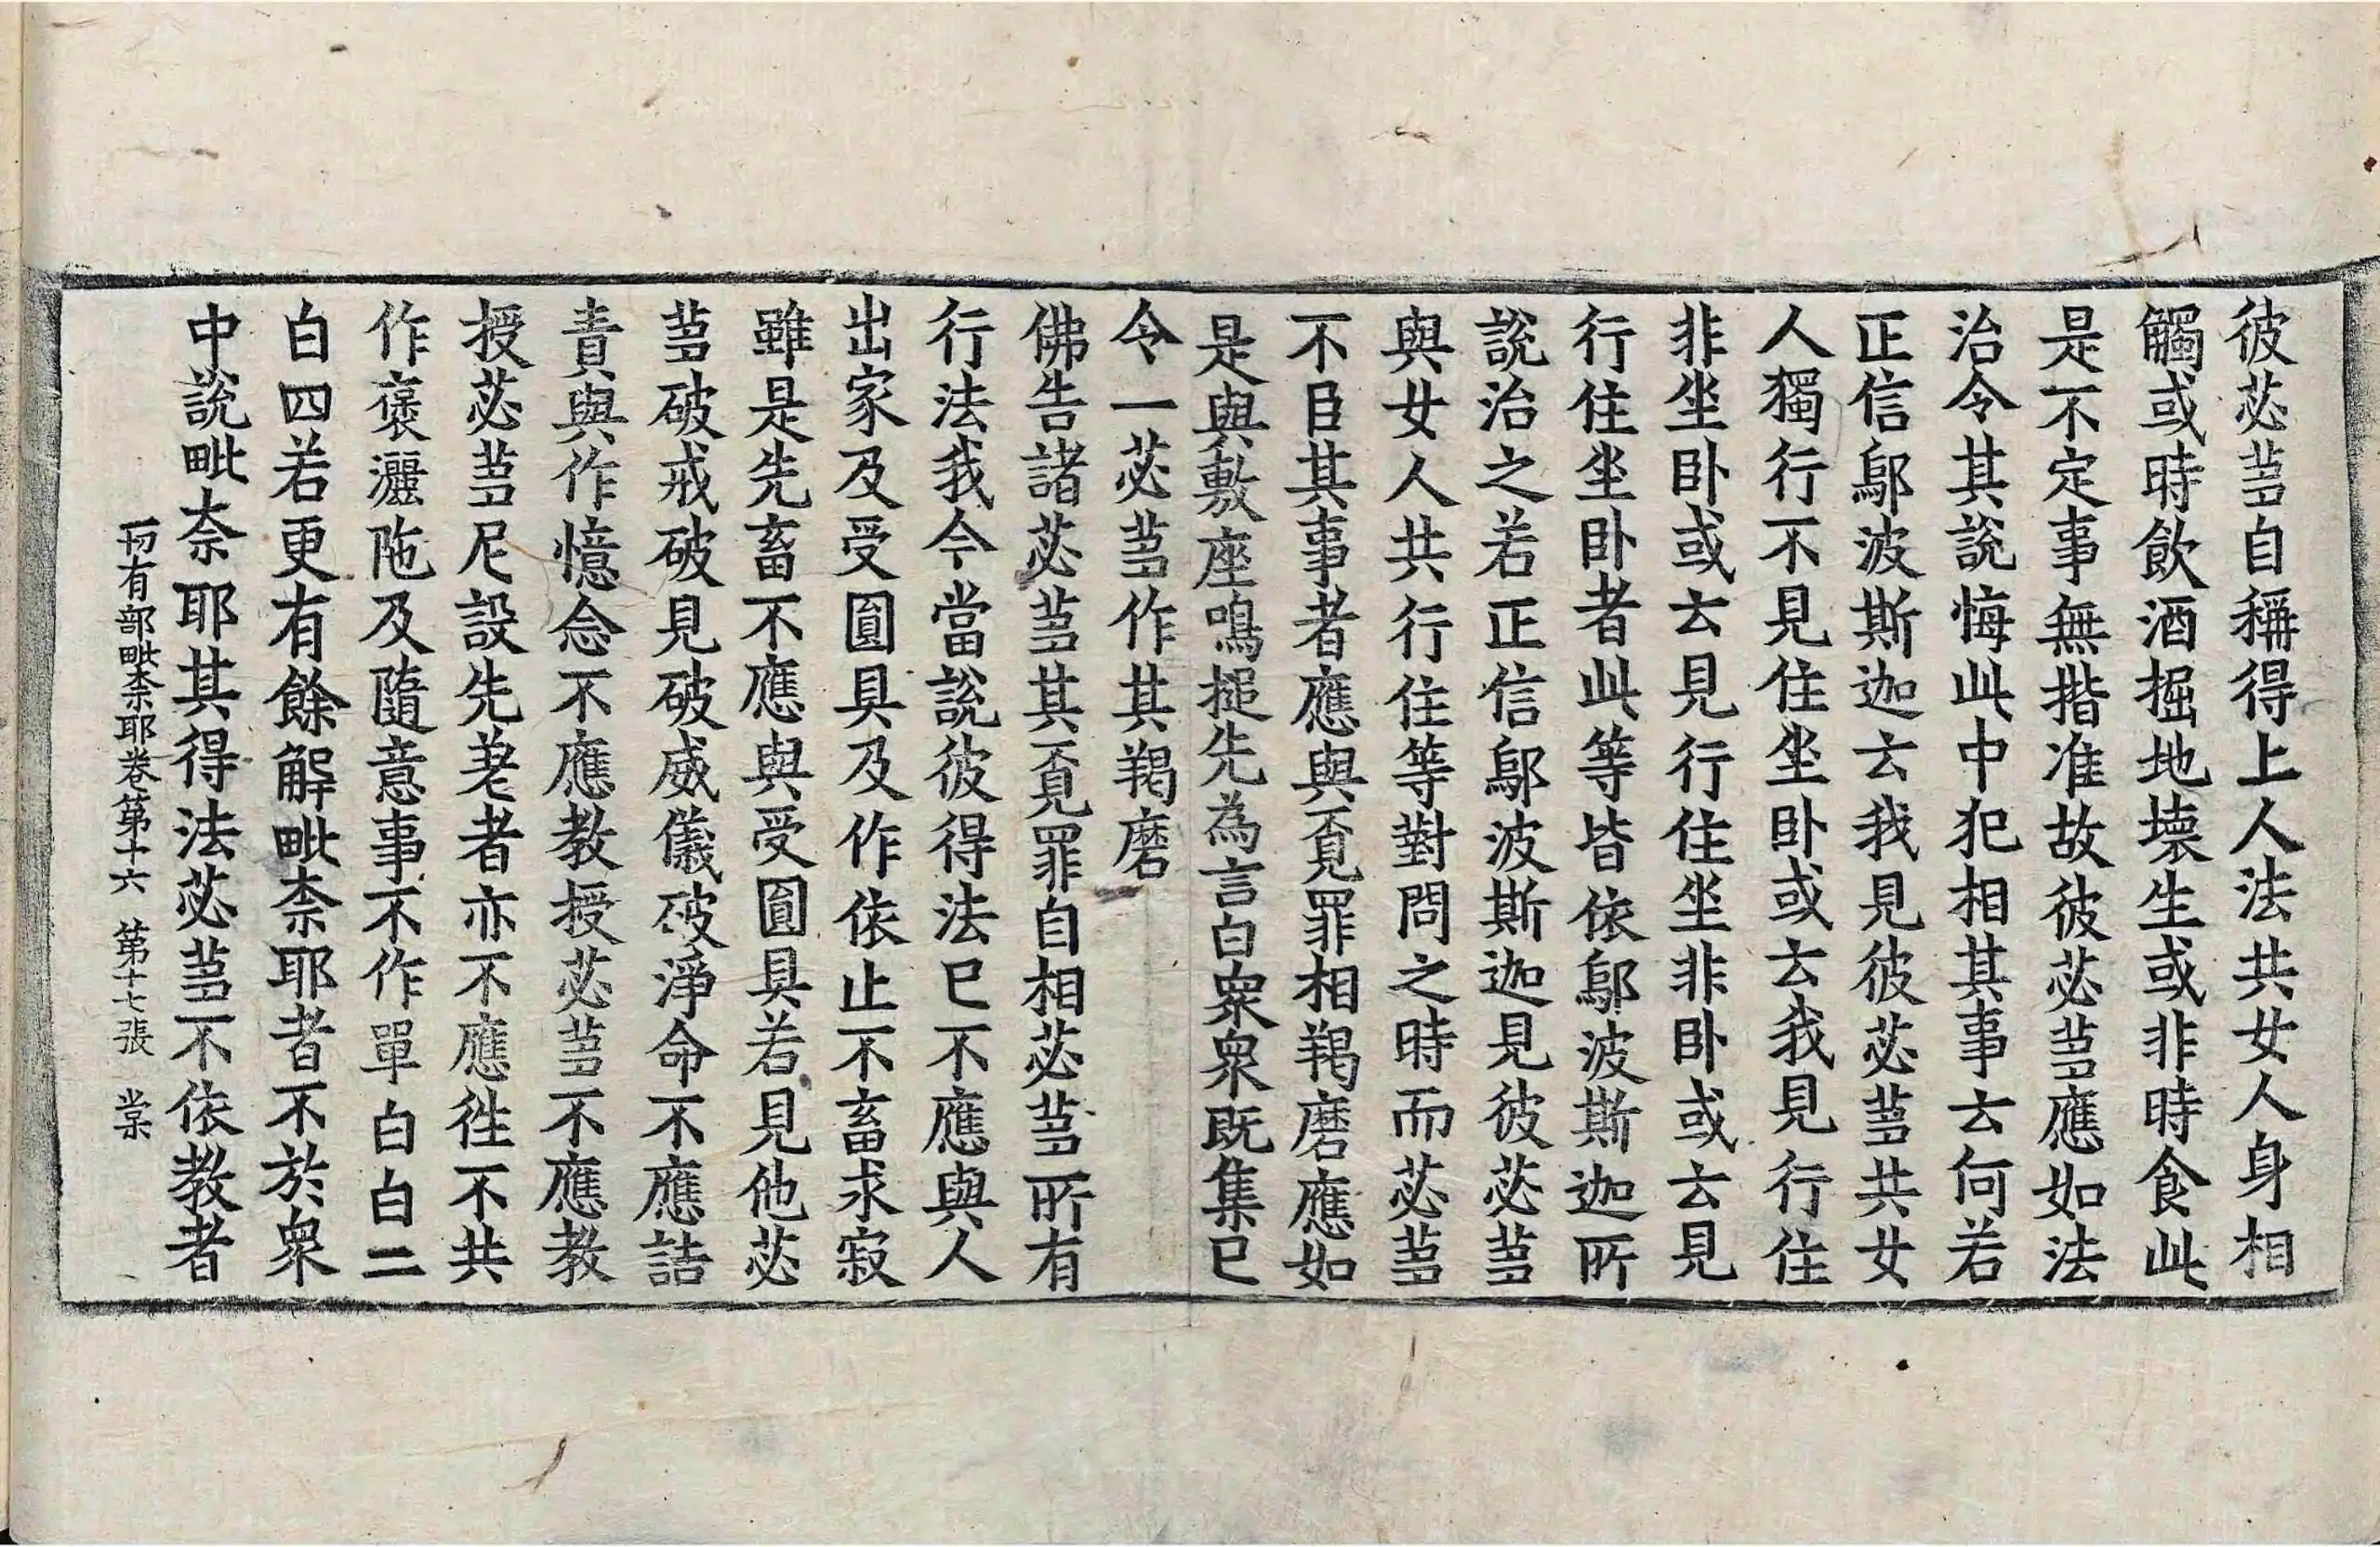 彼苾芻自稱得上人法共女人身相
觸或時飲酒掘地壞生或非時食此
是不定事無揩准故彼苾芻應如法
治令其說悔此中犯相其事云何若
正信鄔波斯迦云我見彼苾芻共女
人獨行不見住坐卧或云我見行住
非坐卧或云見行住坐非卧或云見
行住坐卧者此等皆依鄔波斯迦所
說治之若正信鄔波斯迦見彼苾芻
與女人共行住等對問之時而苾芻
不臣其事者應與覔罪相羯磨應如
是與敷座鳴搥先為言白衆衆既集已
令一苾芻作其羯磨
佛告諸苾芻其覔罪自相苾芻所有
行法我今當說彼得法已不應與人
出家及受圓具及作依止不畜求寂
雖是先畜不應與受圓具若見他苾
芻破戒破見破威儀破淨命不應詰
責與作憶念不應教授苾芻不應教
授苾芻尼設先差者亦不應往不共
作褒灑陁及隨意事不作單白白二
白四若更有餘解毗奈耶者不於衆
中說毗奈耶其得法苾芻不依教者
一切有部毗奈耶卷第十六 第十七張 棠